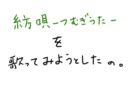 紡唄ーつむぎうたー
を
歌ってみようとしたの。